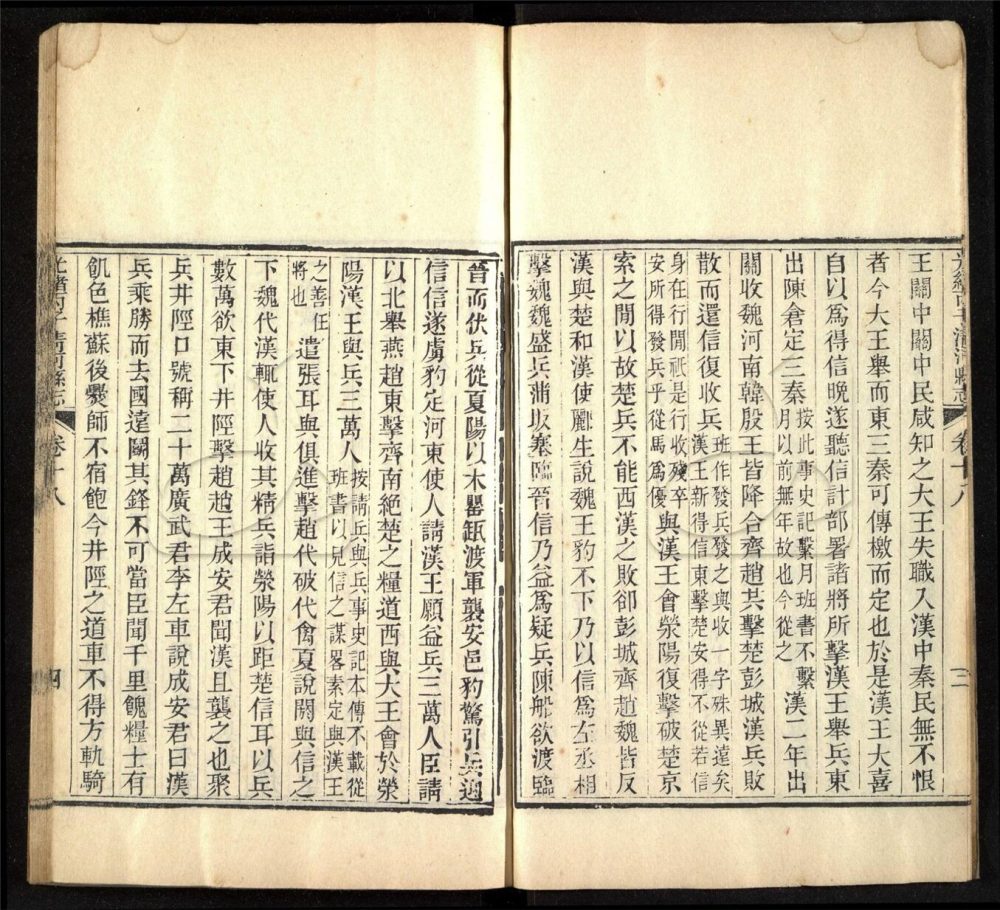 光緒丙子清河縣志
卷十八
三
王關中關中民咸知之大王失職入漢中秦民無不恨
者今大王舉而東三秦可傳檄而定也於是漢王大喜
自以爲得信晚遂聽信計部署諸將所擊漢王舉兵東
出陳倉定三秦按此事史記繫月班書不繫
月以前無年故也今從之漢二年出
關收魏河南韓殷王皆降合齊趙共擊楚彭城漢兵敗
散而還信復收兵班作發兵發之與收一字殊異遠矣
漢王新得信東擊楚安得不從若信
身在行閒祇是行收殘卒
安所得發兵乎從馬爲優與漢王會滎陽復擊破楚京
索之閒以故楚兵不能西漢之敗卻彭城齊趙魏皆反
漢與楚和漢使酈生說魏王豹不下乃以信爲左丞相
擊魏魏盛兵蒲坂塞臨晉信乃益爲疑兵陳船欲渡臨
晉而伏兵從夏陽以木罌缻渡軍襲安邑豹驚引兵迎
信信遂虜豹定河東使人請漢王願益兵三萬人臣請
以北舉燕趙東擊齊南絕楚之糧道西與大王會於滎
陽漢王與兵三萬人按請兵與兵事史記本傳不載從
班書以見信之謀畧素定與漢王
之善任
將也遣張耳與俱進擊趙代破代禽夏說閼與信之
下魏代漢輒使人收其精兵詣滎陽以距楚信耳以兵
數萬欲東下井陘擊趙趙王成安君聞漢且襲之也聚
兵井陘口號稱二十萬廣武君李左車說成安君曰漢
兵乘勝而去國遠鬭其鋒不可當臣聞千里餽糧士有
飢色樵蘇後爨師不宿飽今井陘之道車不得方軌騎
光緒丙子清河縣志
卷十八
四